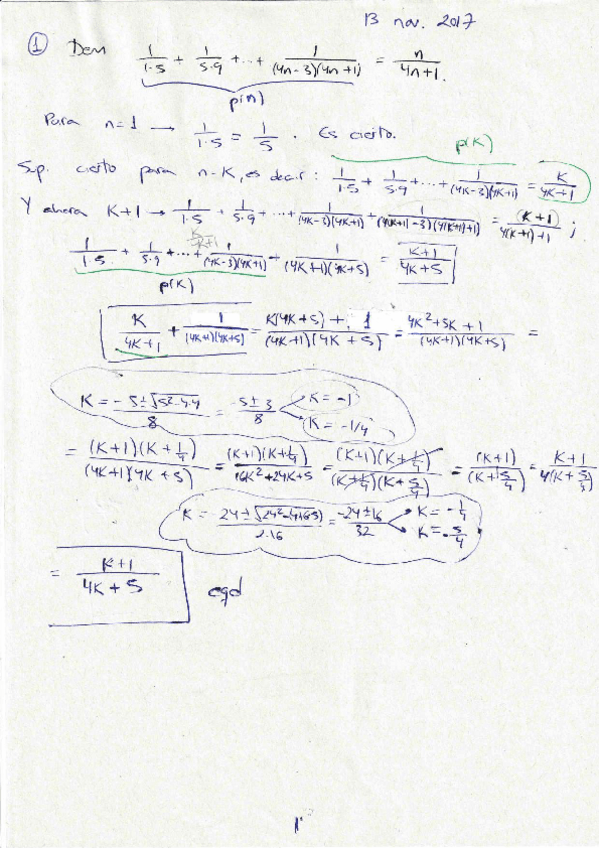 13 nov. 2017
① Dem 1/(1·5) + 1/(5·9) + ... + 1/((4n-3)(4n+1)) = n/(4n+1).
p(n)
Para n=1 → 1/(1·5) = 1/5 . Es cierto.
p(K)
Sup. cierto para n-K, es decir: 1/(1·5) + 1/(5·9) + ... + 1/((4K-3)(4K+1)) = K/(4K+1)
Y ahora K+1 → 1/(1·5) + 1/(5·9) + ... + 1/((4K-3)(4K+1)) + 1/((4(K+1)-3)(4(K+1)+1)) = (K+1)/(4(K+1)+1) ;
1/(1·5) + 1/(5·9) + ... + 1/((4K-3)(4K+1)) + 1/((4K+1)(4K+5)) = (K+1)/(4K+5)
p(K)
K/(4K+1) + 1/((4K+1)(4K+5)) = (K(4K+5)+1)/((4K+1)(4K+5)) = (4K²+5K+1)/((4K+1)(4K+5)) =
K = (-5±√(5²-4·4))/8 = (-5±3)/8 K=-1
K=-1/4
= ((K+1)(K+1/4))/((4K+1)(4K+5)) = ((K+1)(K+1/4))/(16K²+24K+5) = ((K+1)(K+1/4))/((K+1/4)(K+5/4)) = (K+1)/(K+5/4) = (K+1)/(4(K+5/4))
K = (-24±√(24²-4·16·5))/(2·16) = (-24±16)/32 K=-1/4
K=-5/4
= (K+1)/(4K+5) cqd